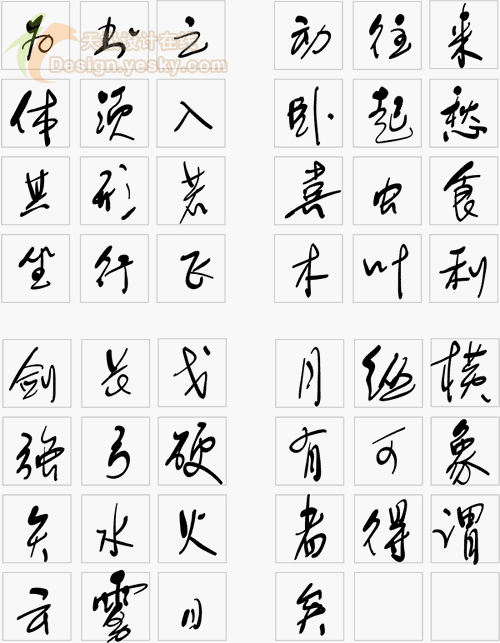 天极设计在线
Design.yesky.com
为书之
体须入
其形若
坐行飞
动往来
卧起愁
喜虫食
木叶利
剑长戈
强弓硬
矢水火
云雾日
月纵横
有可象
者得谓
矣